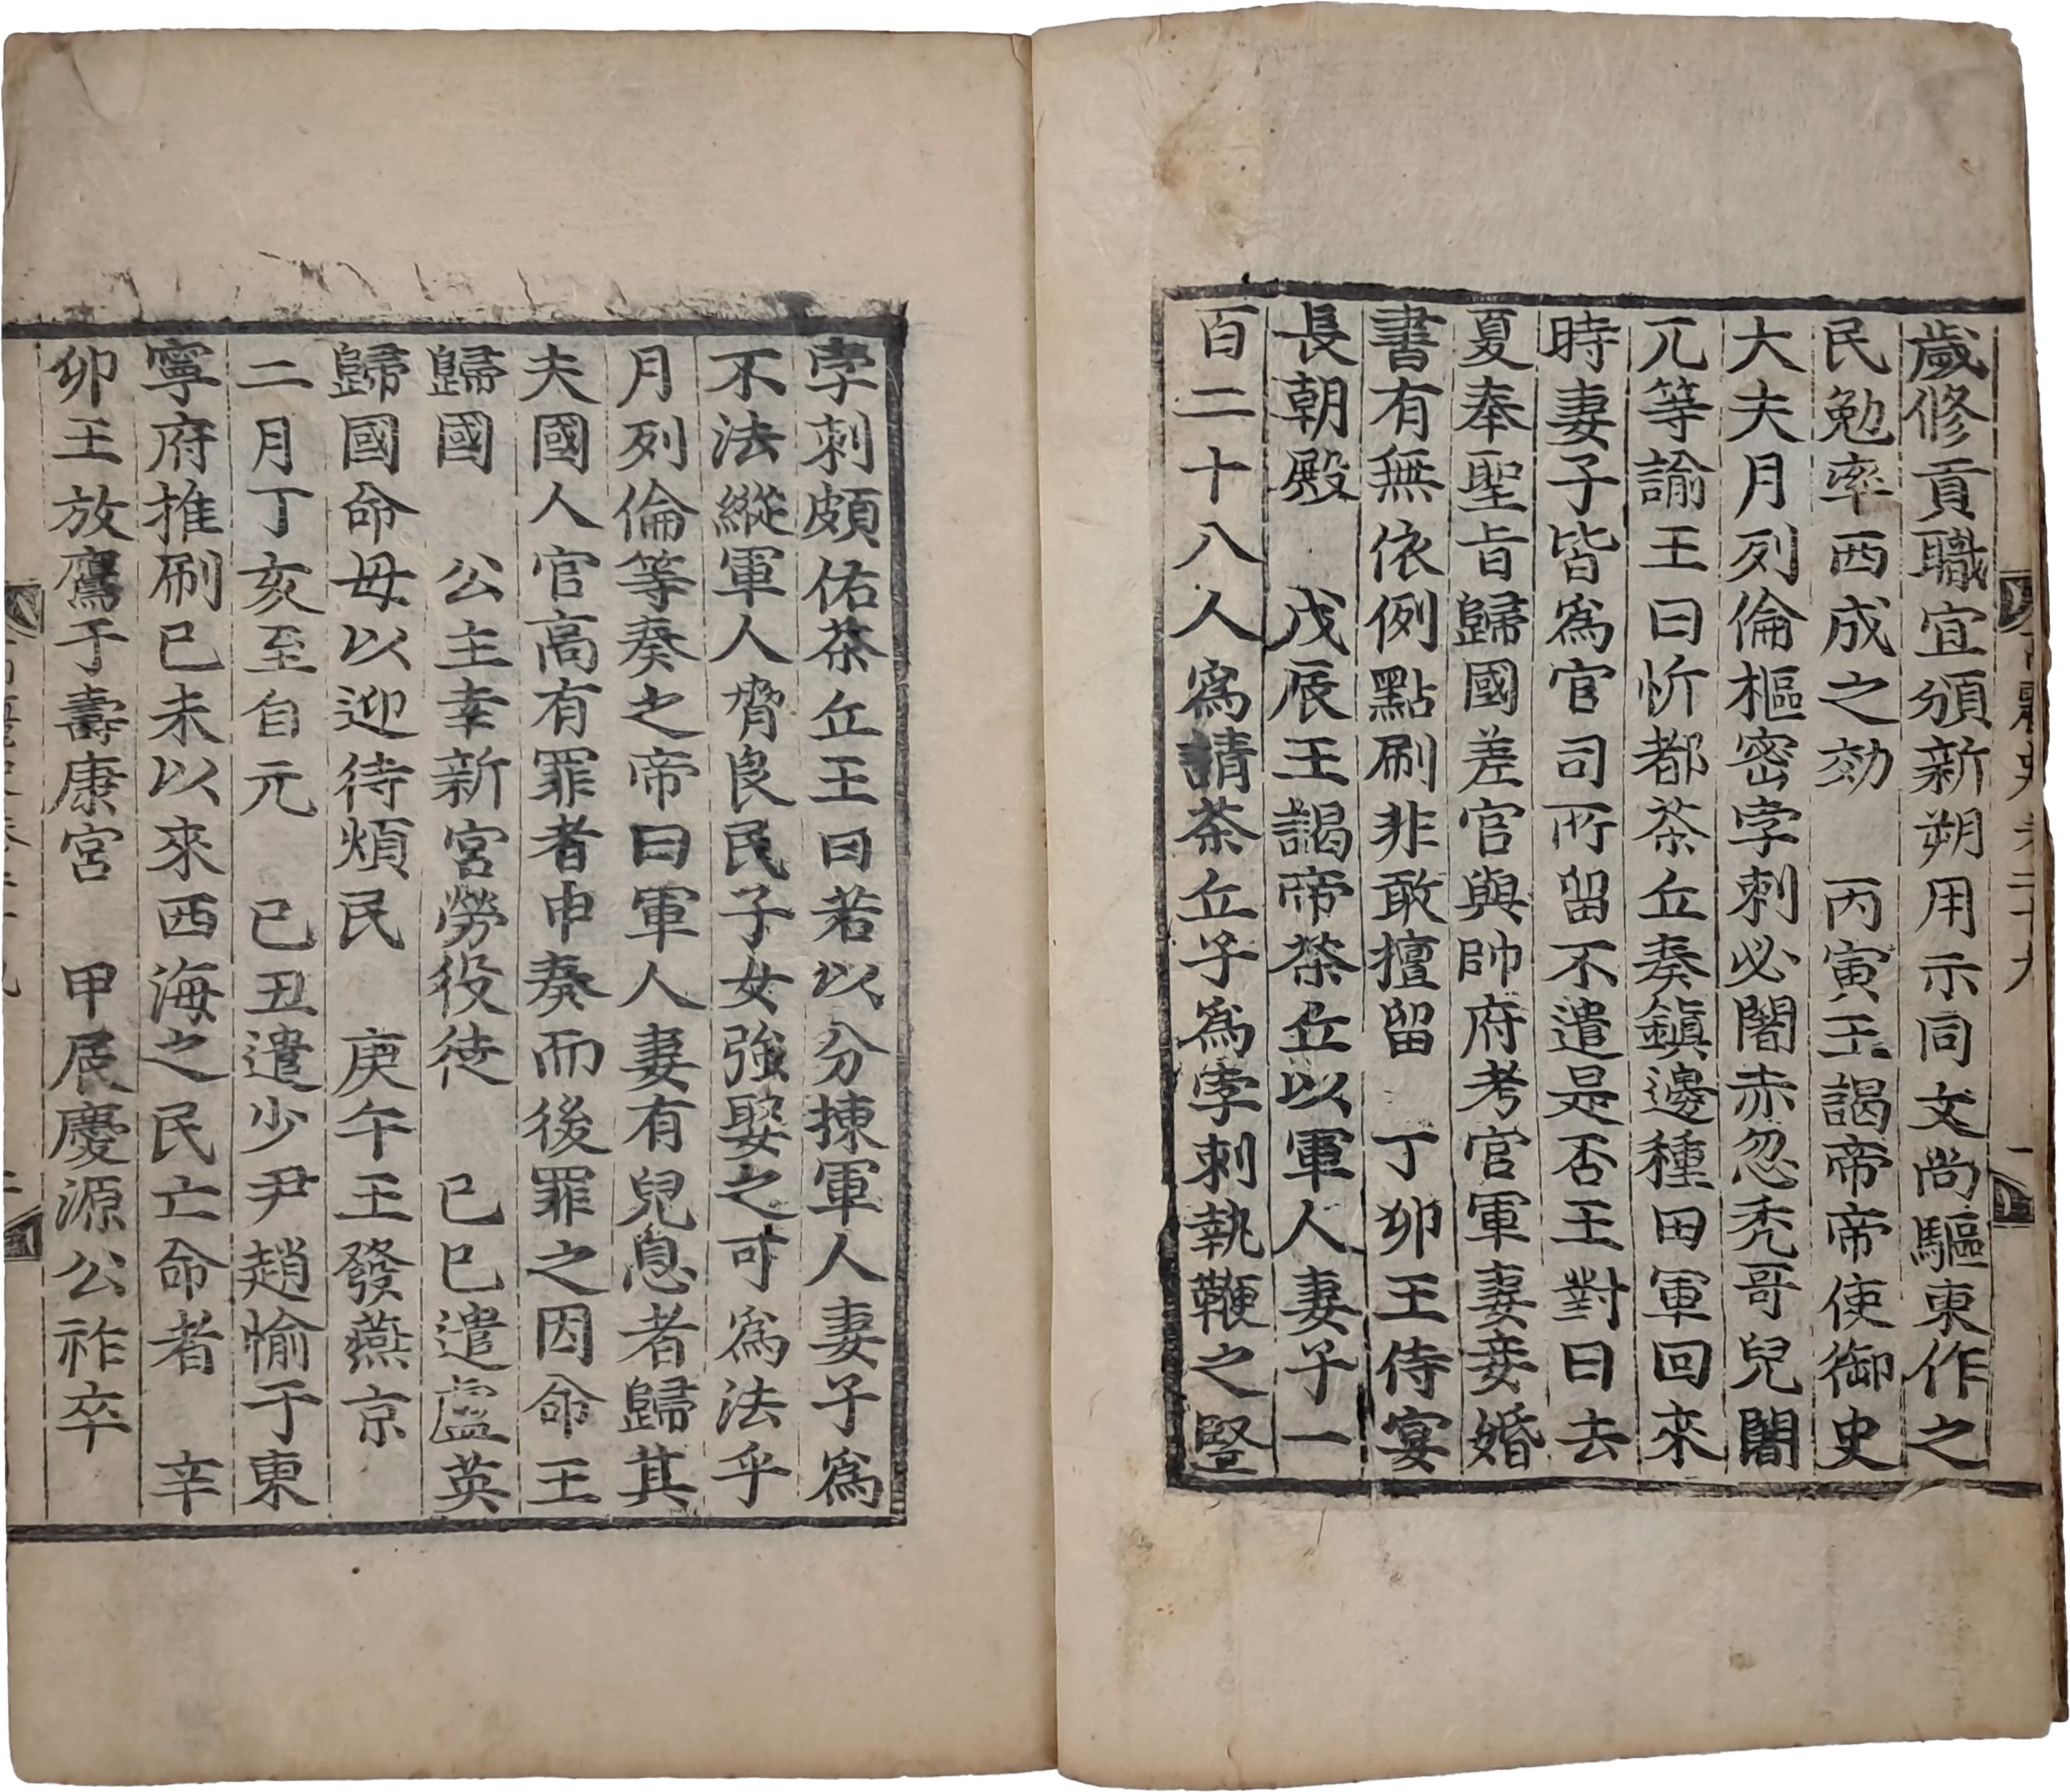 歲修貢職宜頒新朔用示同文尚驅東作之
民勉率西成之効　丙寅王謁帝帝使御史
大夫月列倫樞密孛刺必闍赤忽禿哥兒闍
兀等諭王曰忻都茶丘奏鎭邊種田軍回來
時妻子皆爲官司所留不遣是否王對曰去
夏奉聖旨歸國差官與帥府考官軍妻妾婚
書有無依例點刷非敢擅留　丁卯王侍宴
長朝殿　戊辰王謁帝茶丘以軍人妻子一
百二十八人爲請茶丘子爲孛刺執鞭之竪
孛刺頗佑茶丘王曰若以分揀軍人妻子爲
不法縱軍人脅良民子女強娶之可爲法乎
月列倫等奏之帝曰軍人妻有兒息者歸其
夫國人官高有罪者申奏而後罪之因命王
歸國　公主幸新宮勞役徒　己巳遣盧英
歸國命毋以迎待煩民　庚午王發燕京
二月丁亥至自元　己丑遣少尹趙愉于東
寧府推刷己未以來西海之民亡命者　辛
卯王放鷹于壽康宮　甲辰慶源公祚卒